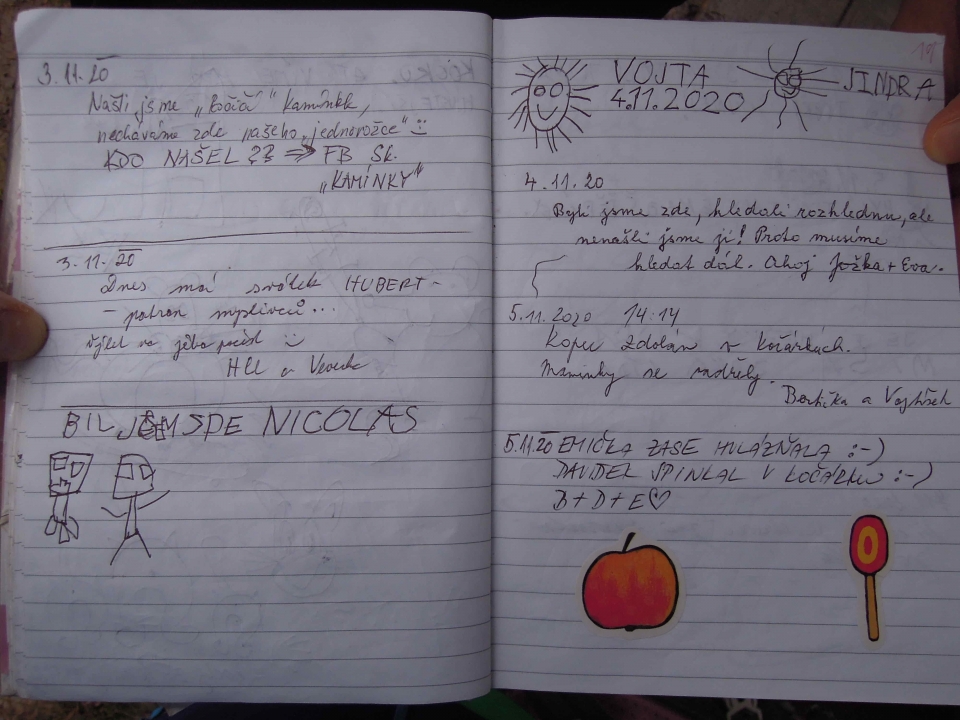 3.11.20
Našli jsme „kočičí" kamínkk,
necháváme zde našeho „jednorožce"
KDO NAŠEL ?? => FB sk.
„KAMÍNKY"
3.11.20
Dnes má svátek HUBERT -
- patron myslivců...
výlet na jeho počest
a
BIL JSEM SDE NICOLAS
19
VOJTA
4.11.2020
JINDRA
4.11.20
Byli jsme zde, hledali rozhlednu, ale
nenašli jsme ji! Proto musíme
hledat dál. Ahoj Jožka + Eva.
5.11.2020 14:14
Kopec zdolán v kočárkách.
Maminky se nadřely.
a Vojtíšek
5.11.20 EMIČKA ZASE HULÁKALA :-)
DAVÍDEK SPINKAL V KOČÁRKU :-)
B + D + E ♡